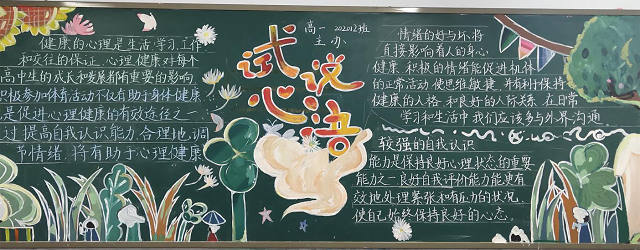 健康的心理是生活.学习.工作
和交往的保证。心理健康对每个
高中生的成长和发展都有重要的影响。
积极参加体育活动不仅有助于身体健康,
是促进心理健康的有效途径之一。
过提高自我认识能力,合理地调
节情绪,将有助于心理健康
高一 202012班
主办
试说
心语
情绪的好与坏.将
直接影响着人的身心
健康.积极的情绪能促进机体
的正常活动,使思维敏捷,并有利于保持
健康的人格,和良好的人际关系.在日常
学习和生活中我们应该多与外界沟通.
较强的自我认识
能力是保持良好心理状态的重要
能力之一良好自我评价能力能更有
效地处理紧张和有压力的状况,
使自己始终保持良好的心态。